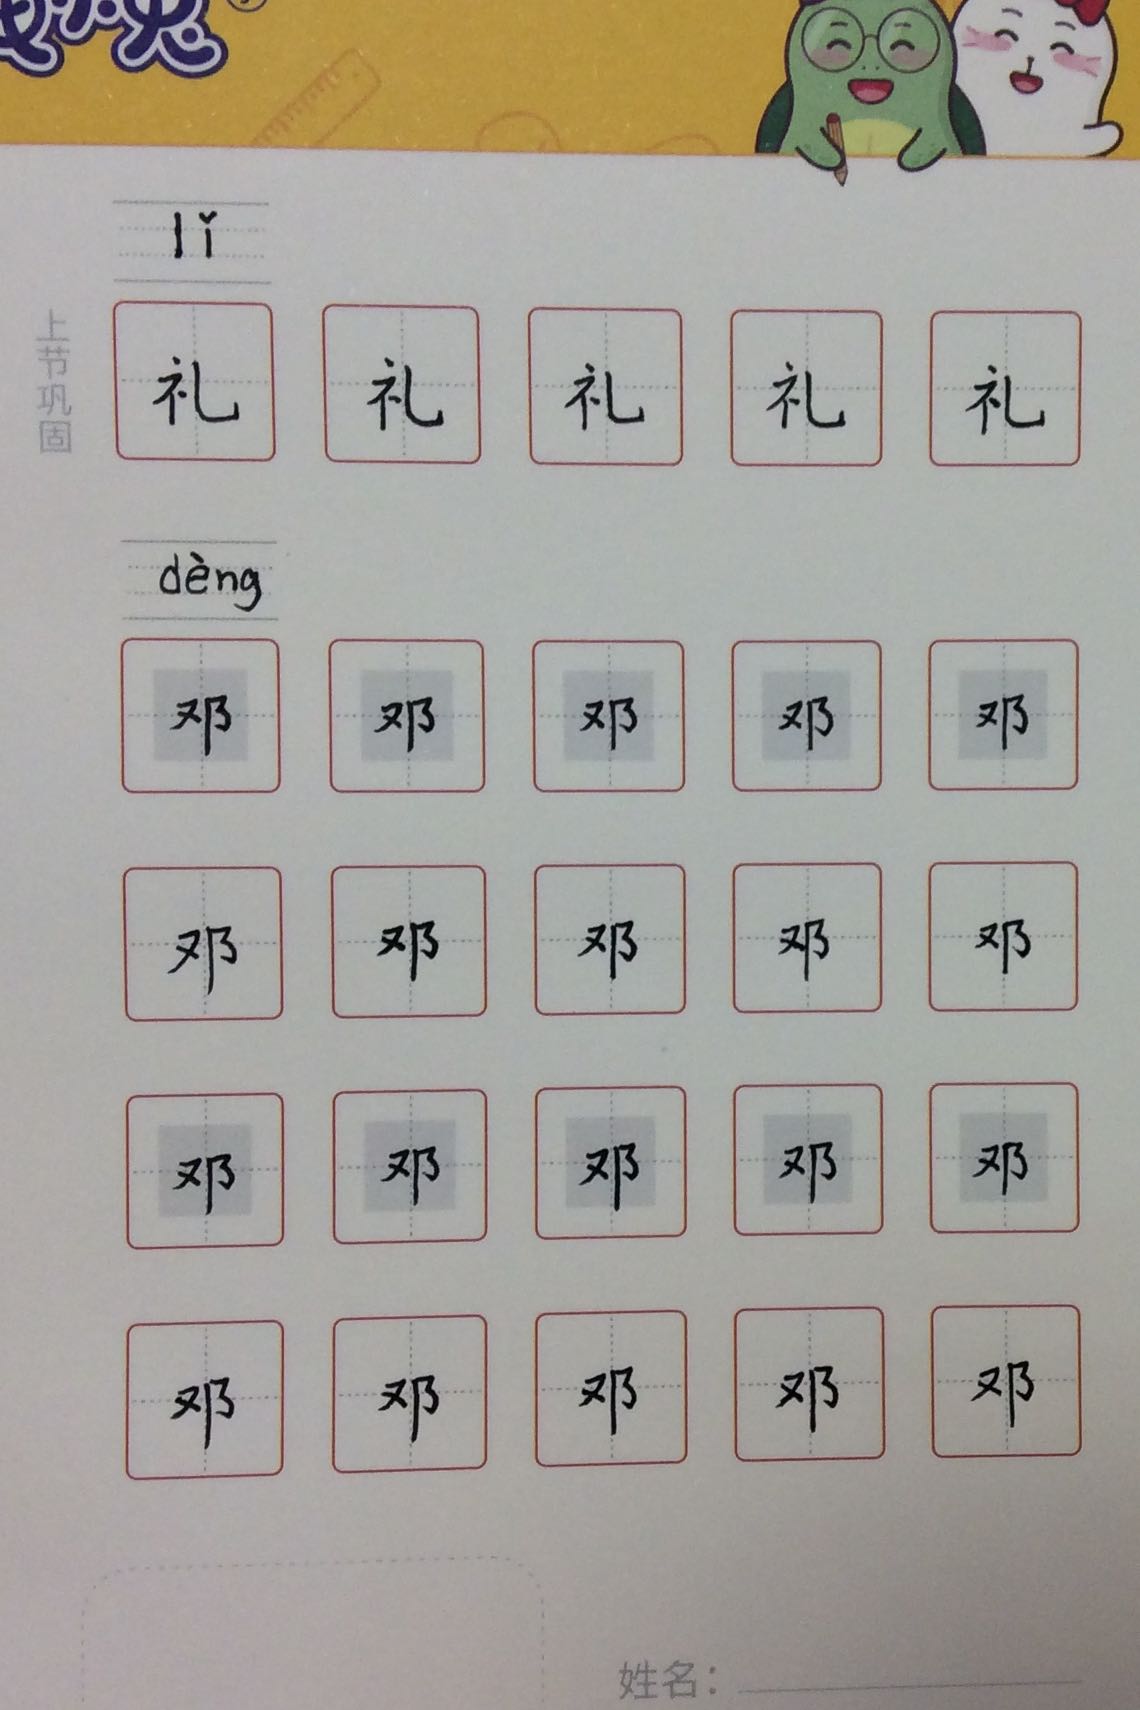 兔
lǐ
上节巩固
礼 礼 礼 礼 礼
dèng
邓 邓 邓 邓 邓
邓 邓 邓 邓 邓
邓 邓 邓 邓 邓
邓 邓 邓 邓 邓
姓名：